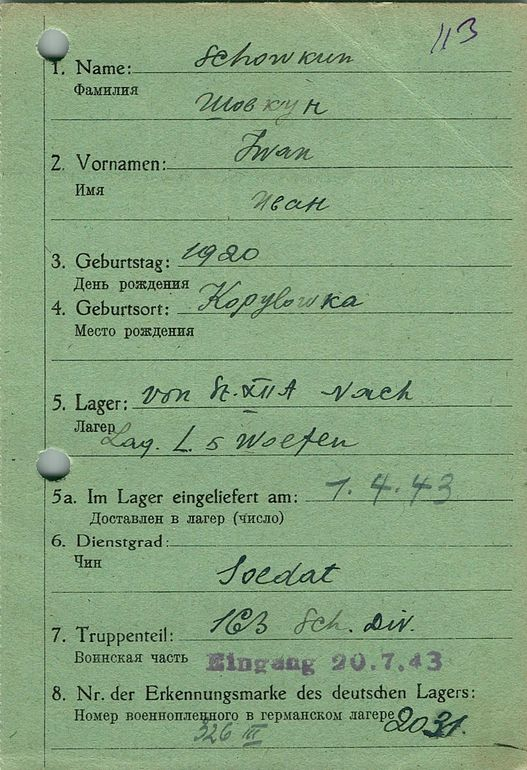 113
1. Name: Schowkun
Фамилия
Шовкун
2. Vornamen: Iwan
Имя
Иван
3. Geburtstag: 1920
День рождения
4. Geburtsort: Kopylowka
Место рождения
5. Lager: von St. XII A nach
Лагер Lag. L. 5 Woefen
5a. Im Lager eingeliefert am: 1.4.43
Доставлен в лагер (число)
6. Dienstgrad:
Чин
Soldat
7. Truppenteil: 163 Sch. Div.
Воинская часть Eingang 20.7.43
8. Nr. der Erkennungsmarke des deutschen Lagers:
Номер военнопленного в германском лагере 2031.
326 III